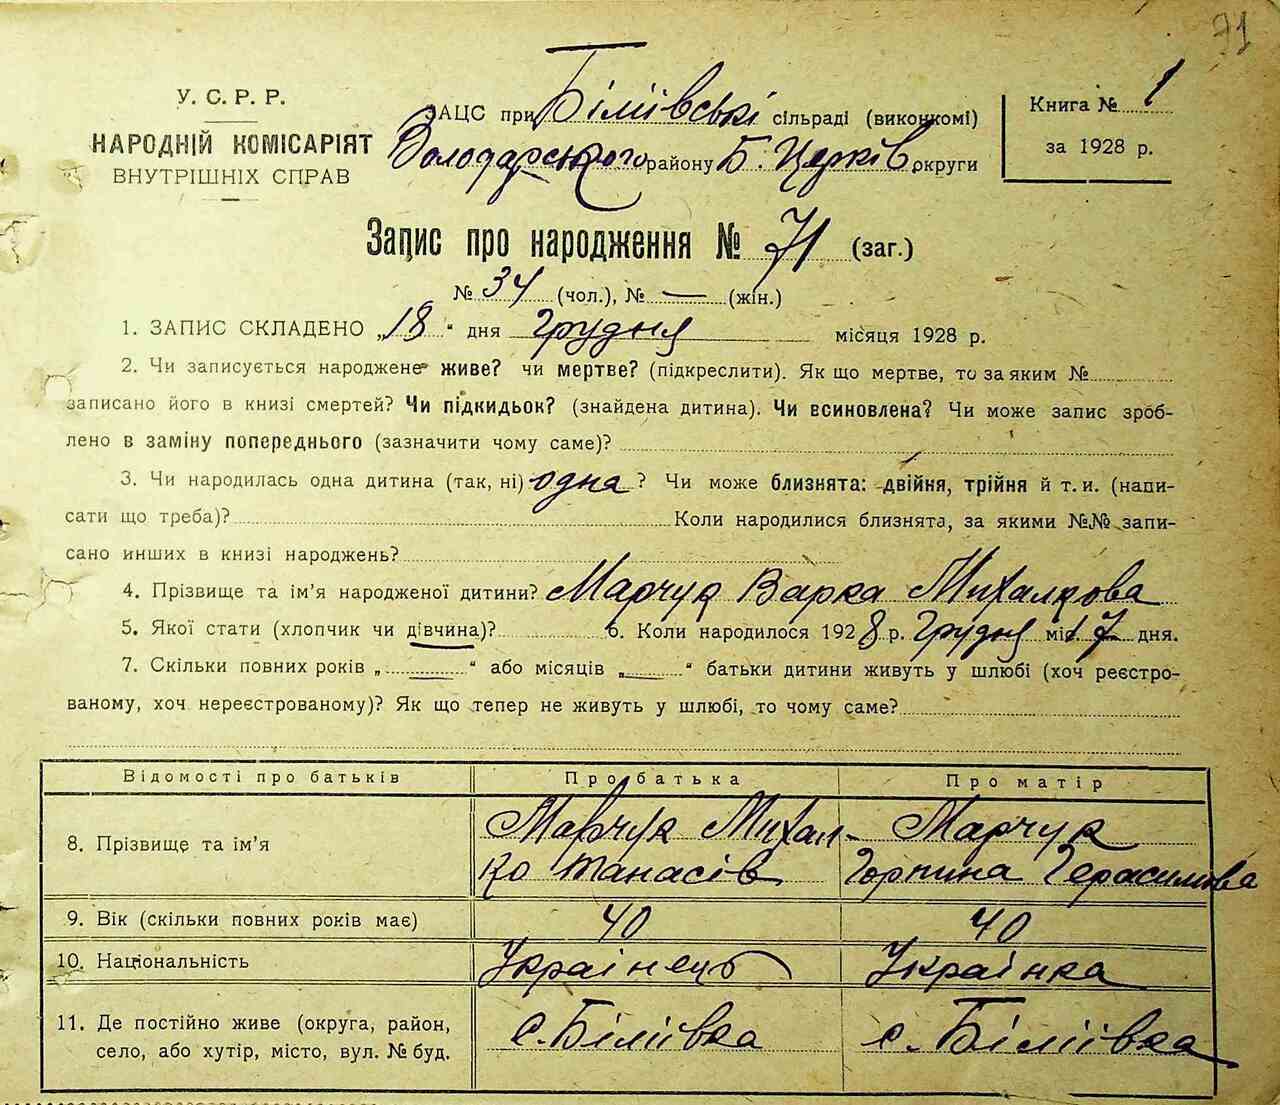 71
У. С. Р. Р.
НАРОДНІЙ КОМІСАРІЯТ
ВНУТРІШНІХ СПРАВ
ЗАЦС при Біліївські сільраді (виконкомі)
Володарського району Б. Церків. округи
Книга № 1
за 1928 р.
Запис про народження № 71 (заг.)
№ 34 (чол.), № — (жін.)
1. ЗАПИС СКЛАДЕНО „18“ дня Грудня місяця 1928 р.
2. Чи записується народжене живе? чи мертве? (підкреслити). Як що мертве, то за яким №
записано його в книзі смертей? Чи підкидьок? (знайдена дитина). Чи всиновлена? Чи може запис зроб-
лено в заміну попереднього (зазначити чому саме)?
3. Чи народилась одна дитина (так, ні) одна? Чи може близнята: двійня, трійня й т. и. (напи-
сати що треба)? Коли народилися близнята, за якими №№ запи-
сано инших в книзі народжень?
4. Прізвище та ім’я народженої дитини? Марчук Варка Михалкова
5. Якої стати (хлопчик чи дівчина)? 6. Коли народилося 1928 р. Грудня міс. 17 дня.
7. Скільки повних років „ — “ або місяців „ — “ батьки дитини живуть у шлюбі (хоч реєстро-
ваному, хоч нереєстрованому)? Як що тепер не живуть у шлюбі, то чому саме?
Відомості про батьків Про батька Про матір
8. Прізвище та ім’я Марчук Михал- Марчук
ко Танасів Горпина Герасимова
9. Вік (скільки повних років має) 40 40
10. Національність Українець Українка
11. Де постійно живе (округа, район, с. Біліївка с. Біліївка
село, або хутір, місто, вул. № буд.